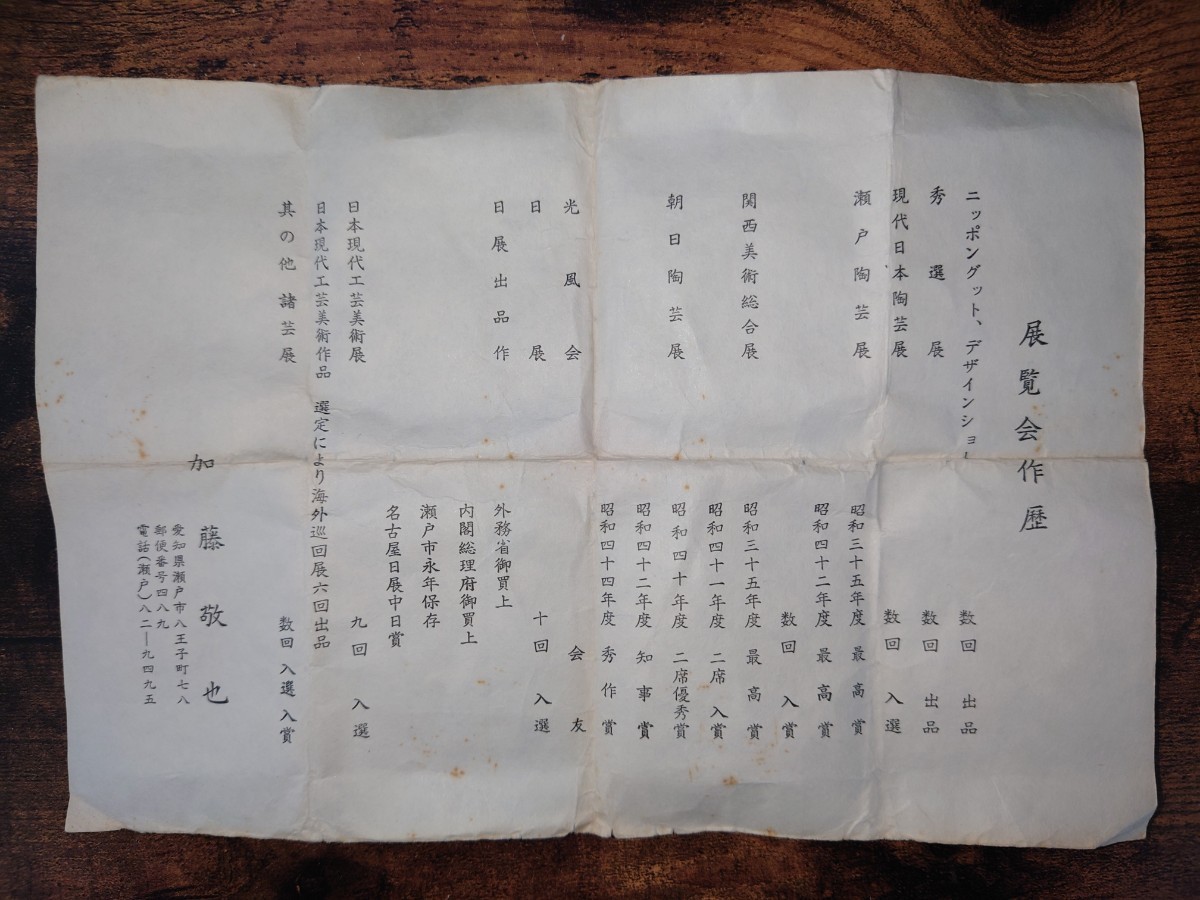 展覧会作歴
ニッポングット、デザインショー 数回 出品
秀選展 数回 出品
現代日本陶芸展 数回 入選
瀬戸陶芸展 昭和三十五年度 最高賞
昭和四十二年度 最高賞
数回 入賞
関西美術総合展 昭和三十五年度 最高賞
昭和四十一年度 二席 入賞
朝日陶芸展 昭和四十年度 二席優秀賞
昭和四十二年度 知事賞
昭和四十四年度 秀作賞
光風会 会友
日展 十回 入選
日展出品作 外務省御買上
内閣総理府御買上
瀬戸市永年保存
名古屋日展中日賞
日本現代工芸美術展 九回 入選
日本現代工芸美術作品 選定により海外巡回展六回出品
其の他諸芸展 数回 入選 入賞
加藤敬也
愛知県瀬戸市八王子町七八
郵便番号四八九
電話(瀬戸)八二―九四九五